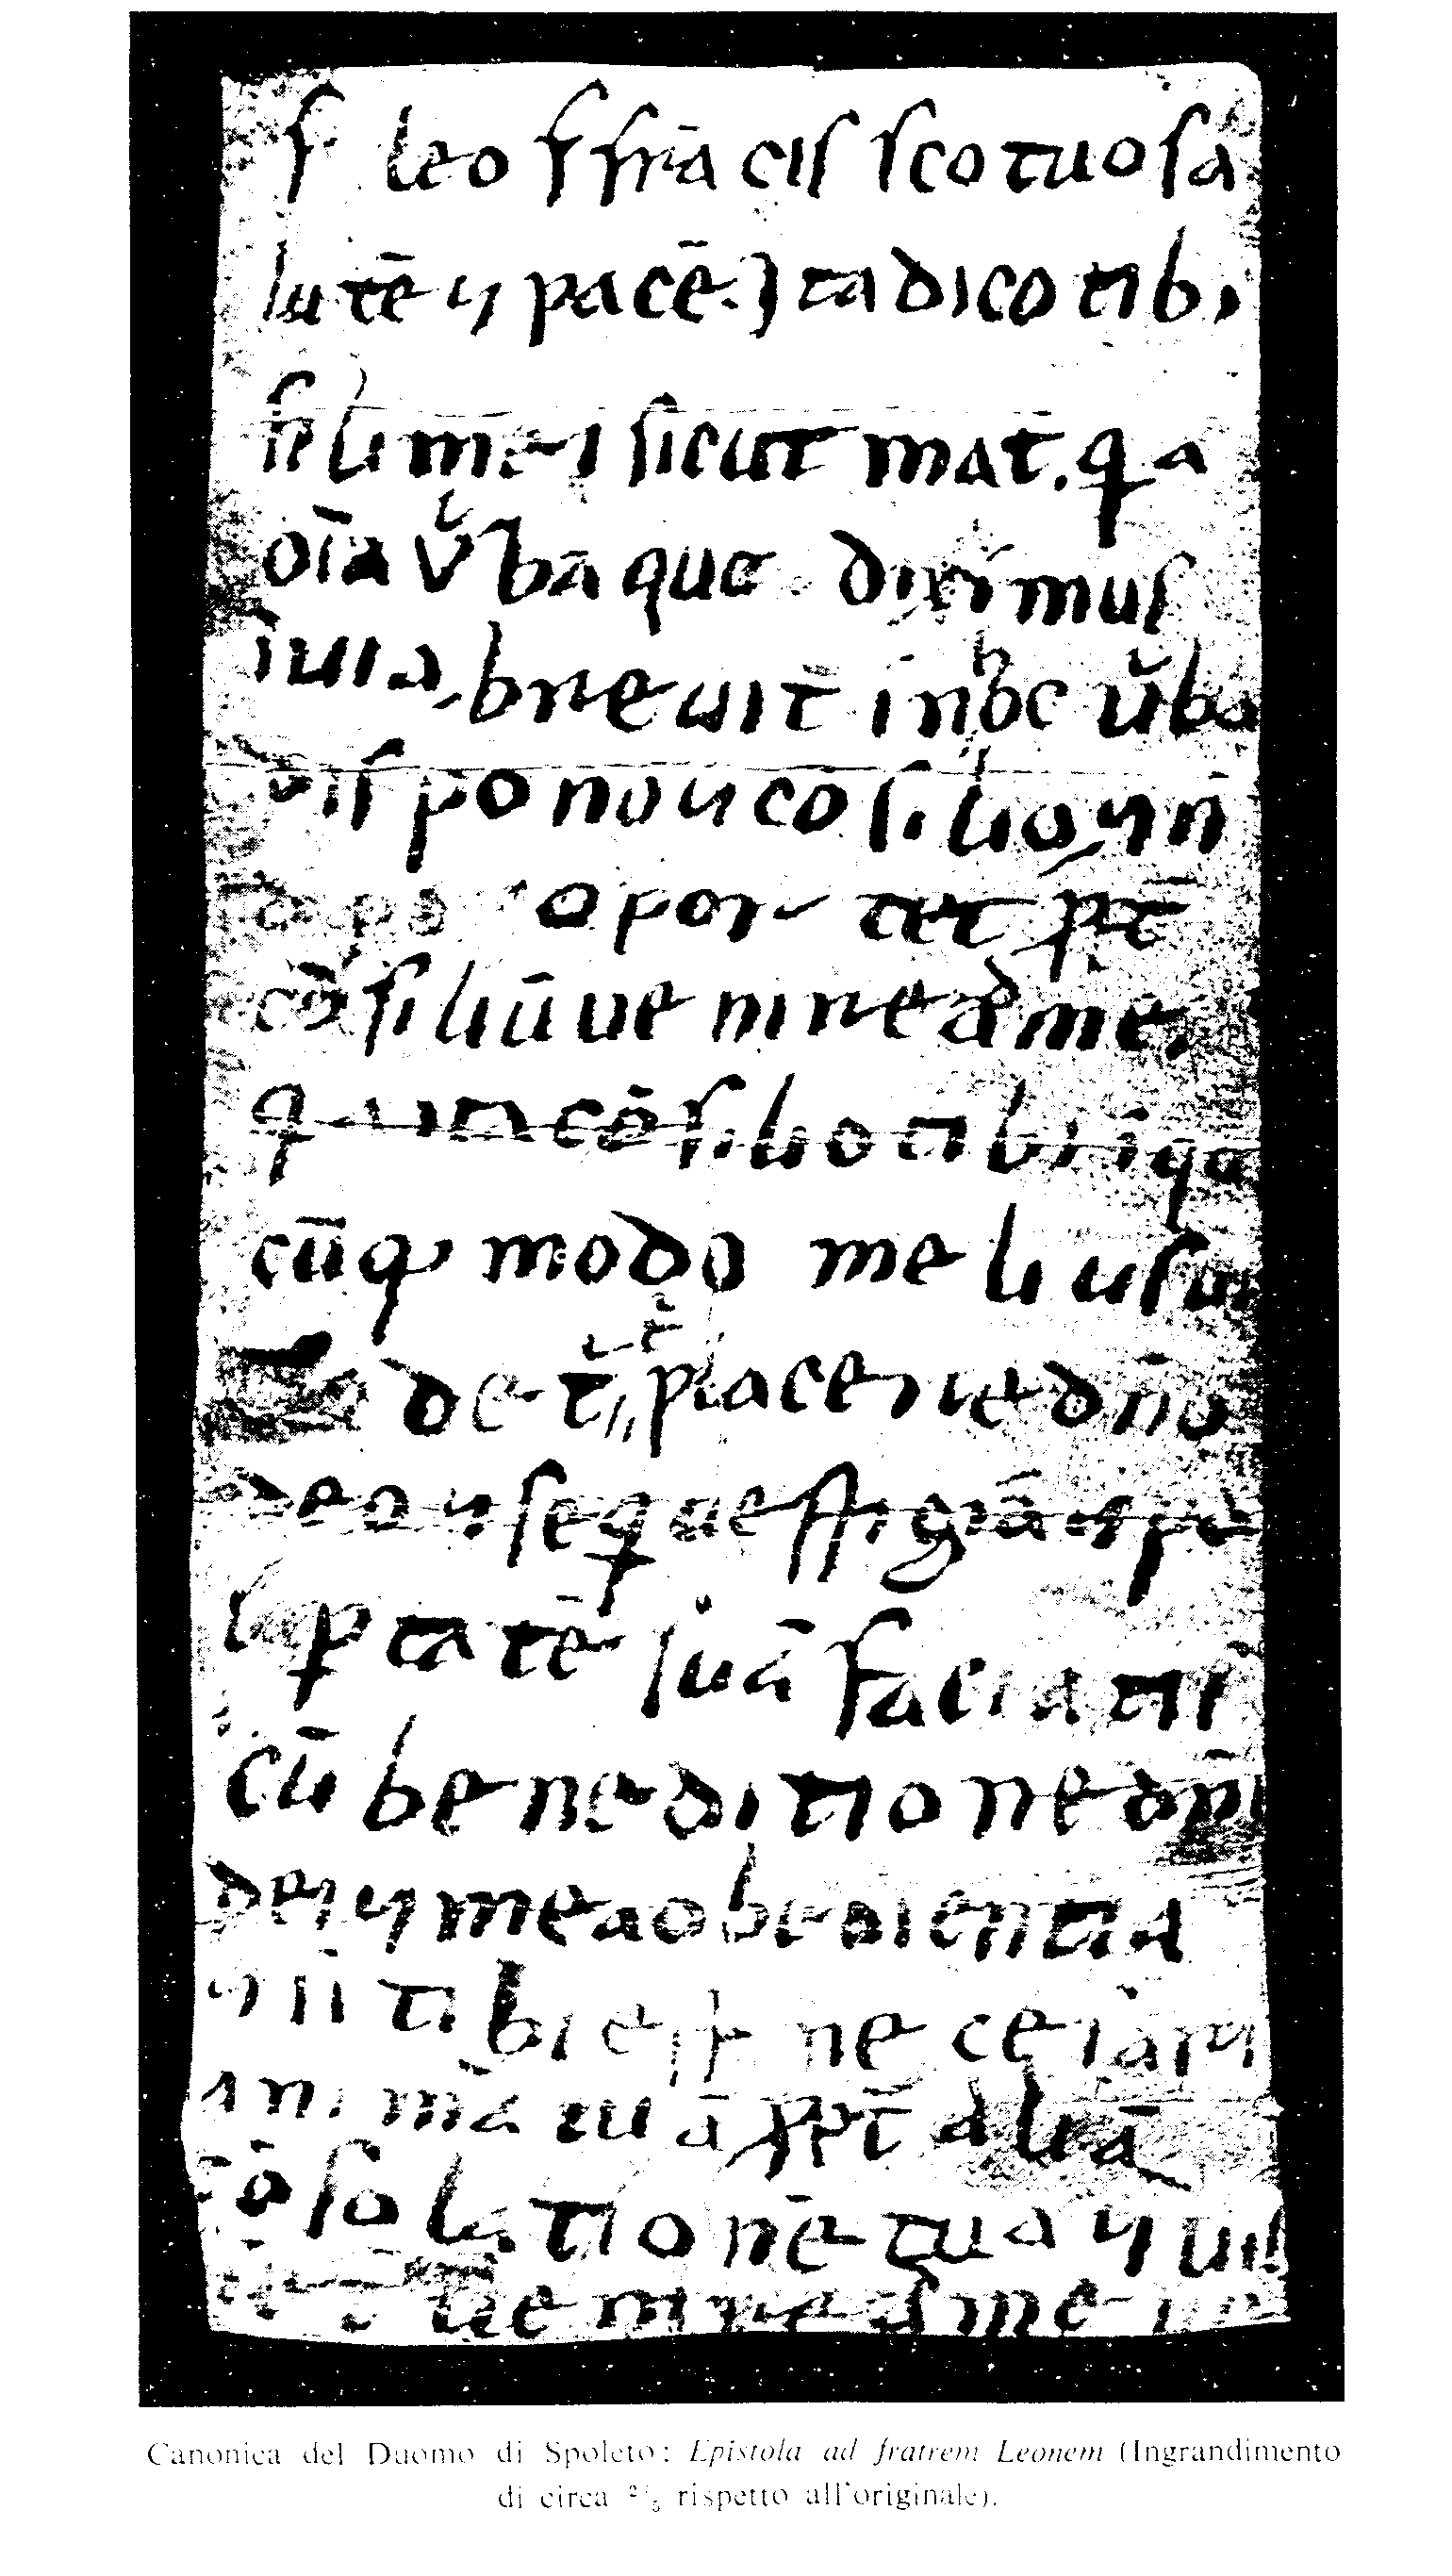 f leo f frācis‌ ſco tuo ſa
lutē ⁊ pacē. Ita dico tibi
fili mei sicut mat. qa
oīa v̆ba que diximus
in uia breuit in hoc ŭba
⁊ ꝯsilio ⁊ n̄
oportet ꝓpt
cōsiliū uenire ad me.
qa ita cōsilio tibi ī qa
cūq modo melius
uidet̄ t̆ placere dño
deo ⁊ seqi uestigia ⁊ pau
ptatē suā faciatis
cū beneditione dñi
dei ⁊ mea obedientia
⁊ si tibi est necesariū
animā tuā ꝓpt aliā
cōsolationē tuā ⁊ uis
uenire ad me ue
Canonica del Duomo di Spoleto: Epistola ad fratrem Leonem (Ingrandimento
di circa ²/₅ rispetto all'originale).